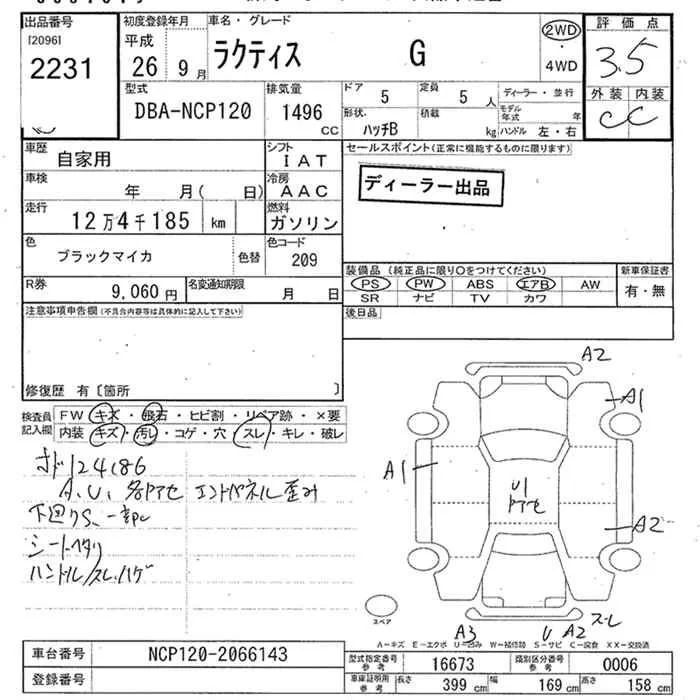 出品番号
[2096]
2231
初度登録年月
平成
26 9月
車名・グレード
ラクティス G
2WD
・
4WD
評価点
3.5
外装 内装
C C
型式
DBA-NCP120
排気量
1496
CC
ドア
5
定員
5 人
ディーラー・並行
形状.
ハッチB
積載
kg
モデル年式 年
ハンドル 左・右
車歴
自家用
シフト
IAT
セールスポイント(正常に機能するものに限ります)
ディーラー出品
車検
年 月( 日)
冷房
AAC
走行
12万4千185 km
燃料
ガソリン
色
ブラックマイカ
色替
色コード
209
R券
9,060円
名変通知期限
月 日
装備品(純正品に限り○をつけてください)
新車保証書
PS PW ABS エアB AW
有・無
SR ナビ TV カワ
後日品
注意事項申告欄(不具合内容等は具体的に記入して下さい)
修復歴 有〔箇所 〕
検査員
記入欄
FW キズ・飛石・ヒビ割・リペア跡・×要
内装 キズ・汚レ・コゲ・穴 スレ・キレ・破レ
オド124186
A、U、各アセ エンドパネル歪み
下回りS、一部PC
シートヘタリ
ハンドル/スレ、ハゲ
A2
A1
A1
U1
アセ
A2
スペア
A3
U A2
スレ
A-キズ E-エクボ U-凹み W-補修跡 S-サビ C-腐食 XX-交換済
車台番号
NCP120-2066143
登録番号
型式指定番号
参考
16673
類別区分番号
参考
0006
車庫証明用
参考
長さ
399 cm
幅
169 cm
高さ
158 cm